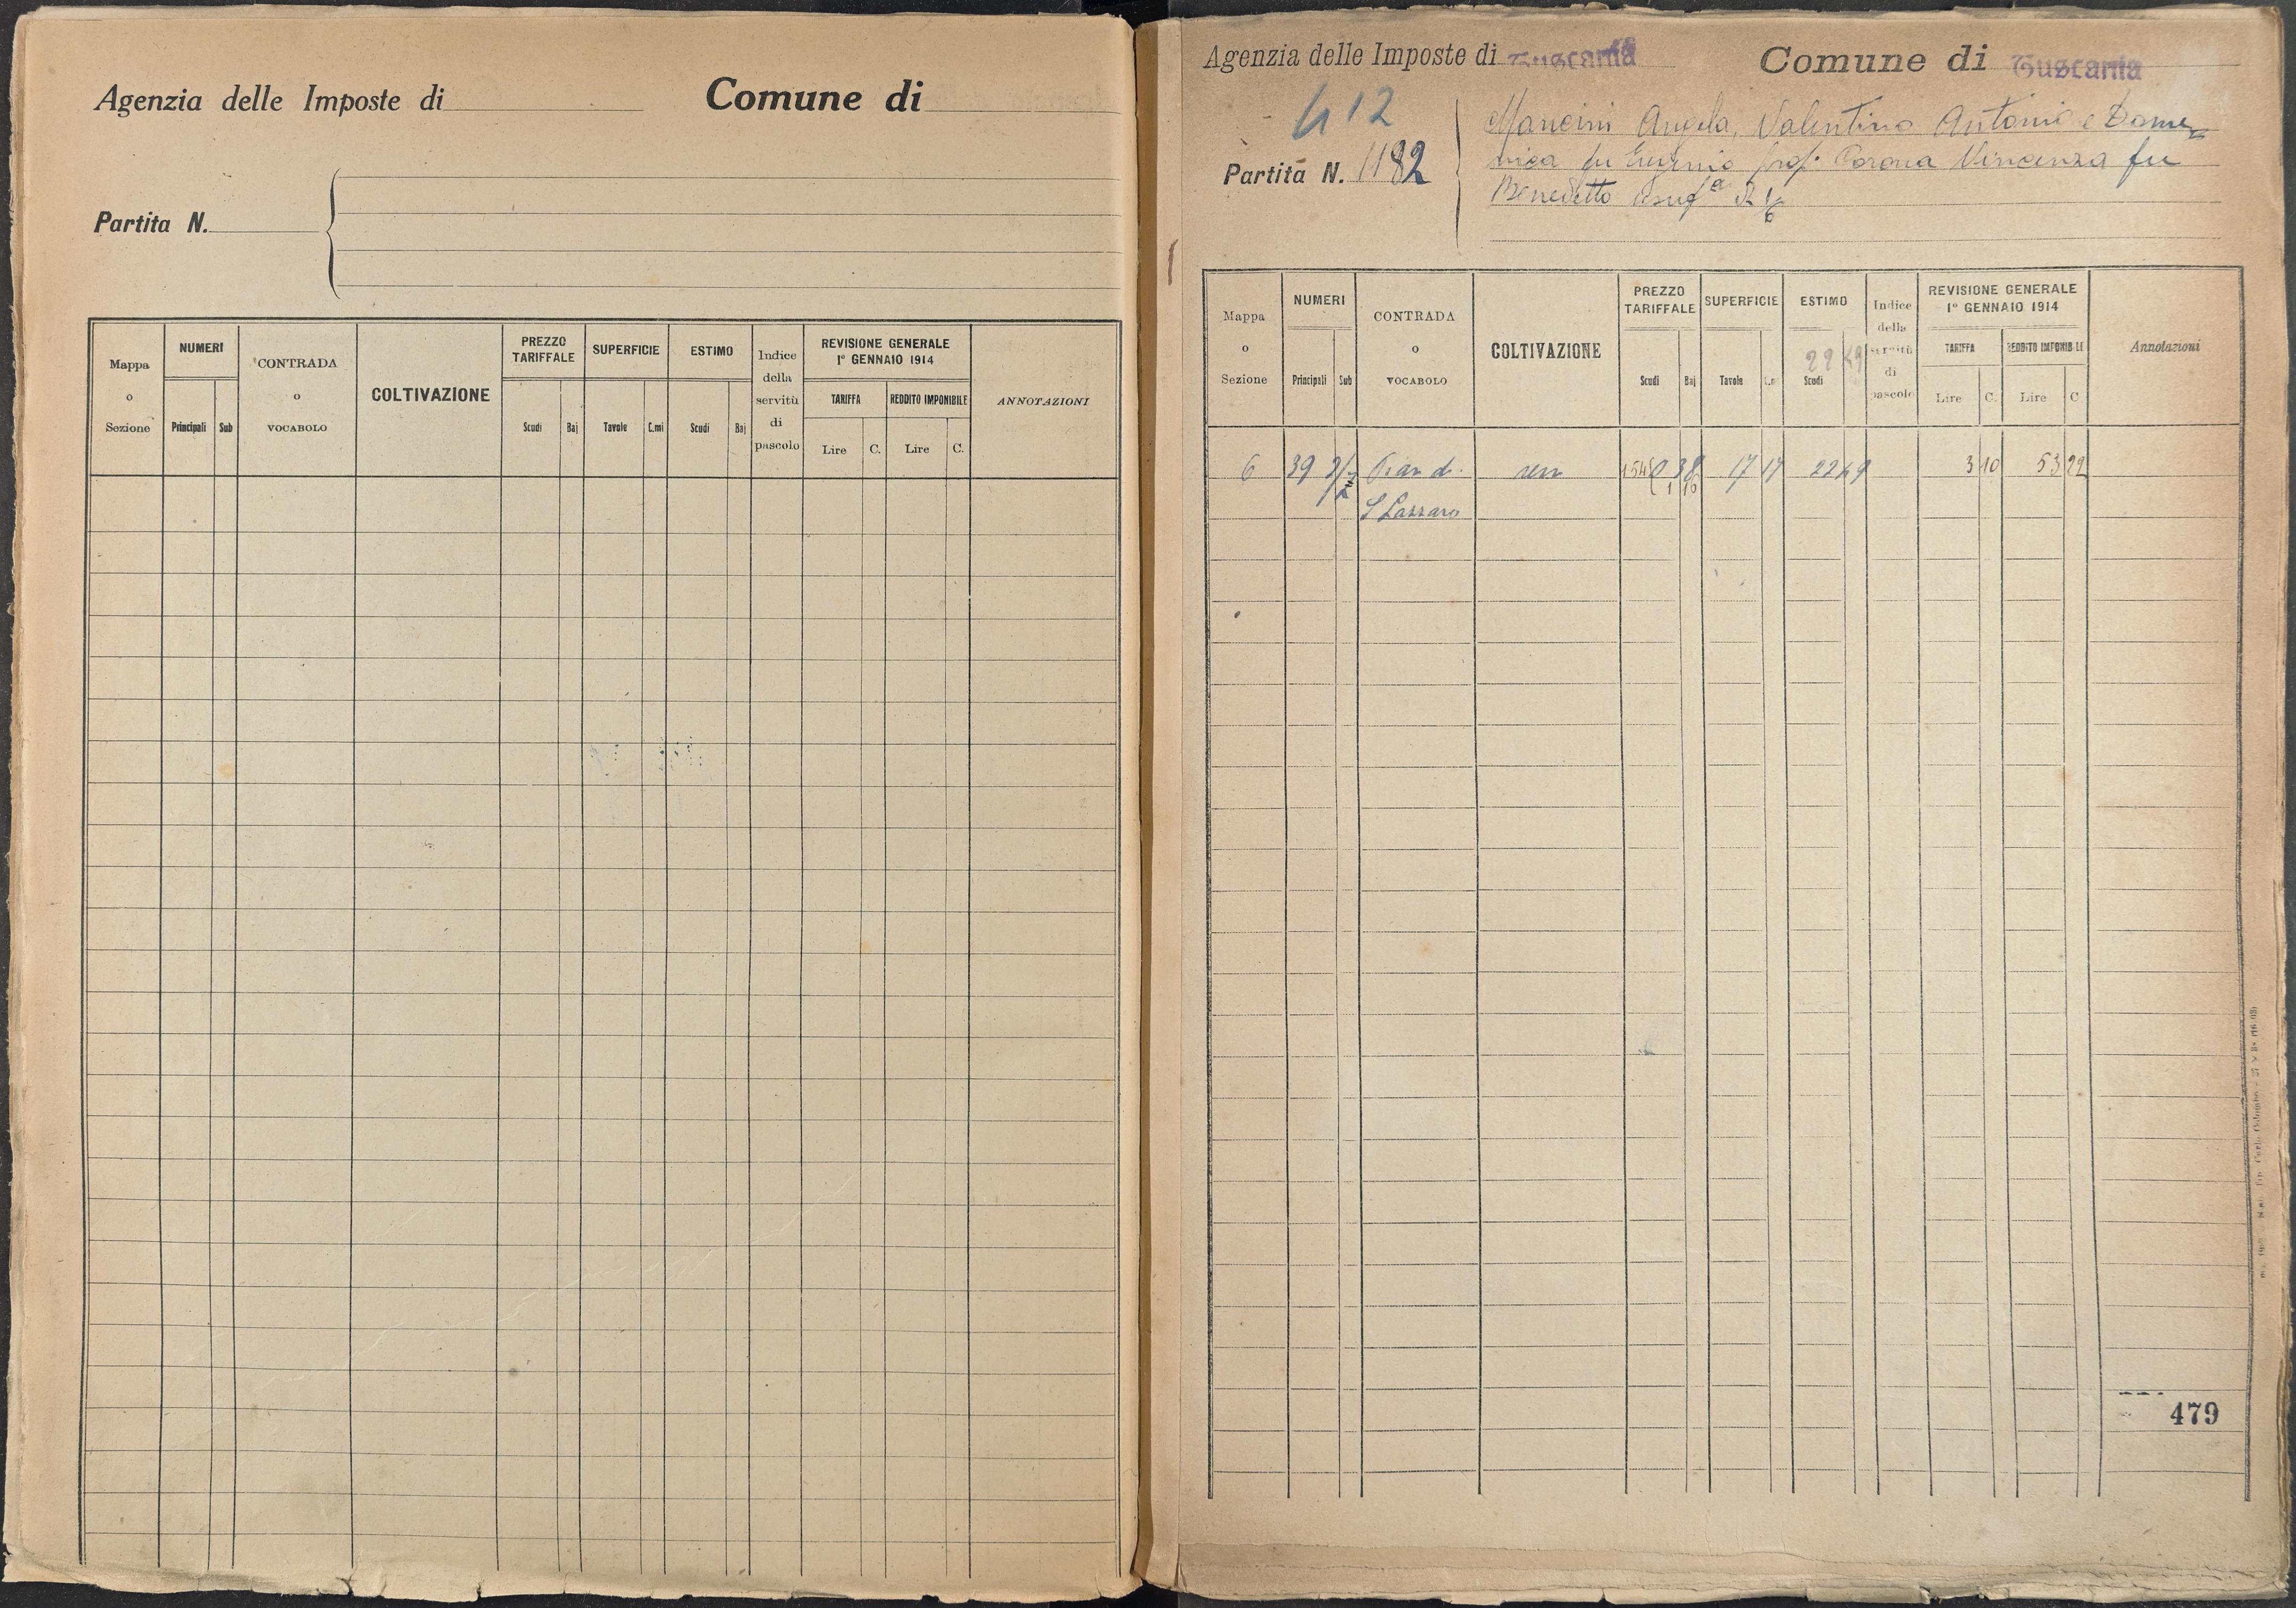 Agenzia delle Imposte di
Comune di
Partita N.
Mappa o Sezione
NUMERI
Principali
Sub
CONTRADA o VOCABOLO
COLTIVAZIONE
PREZZO TARIFFALE
Scudi
Baj
SUPERFICIE
Tavole
C.mi
ESTIMO
Scudi
Baj
Indice della servitù di pascolo
REVISIONE GENERALE
1° GENNAIO 1914
TARIFFA
REDDITO IMPONIBILE
Lire
C.
Lire
C.
ANNOTAZIONI
Agenzia delle Imposte di Tuscania
Comune di Tuscania
412
Partita N. 1182
Mancini Angela, Valentino Antonio e Dome
nica fu Eugenio prop. Corona Vincenza fu
Benedetto usuf.a di 1/6
Mappa o Sezione
NUMERI
Principali
Sub
CONTRADA o VOCABOLO
COLTIVAZIONE
PREZZO TARIFFALE
Scudi
Baj
SUPERFICIE
Tavole
ESTIMO
22 49
Scudi
Indice della servitù di pascolo
REVISIONE GENERALE
1° GENNAIO 1914
TARIFFA
REDDITO IMPONIBILE
Lire
C.
Lire
C
Annotazioni
6 39 Pian di sem 17 17 22 49 3 10 53 22
S Lazzaro
479